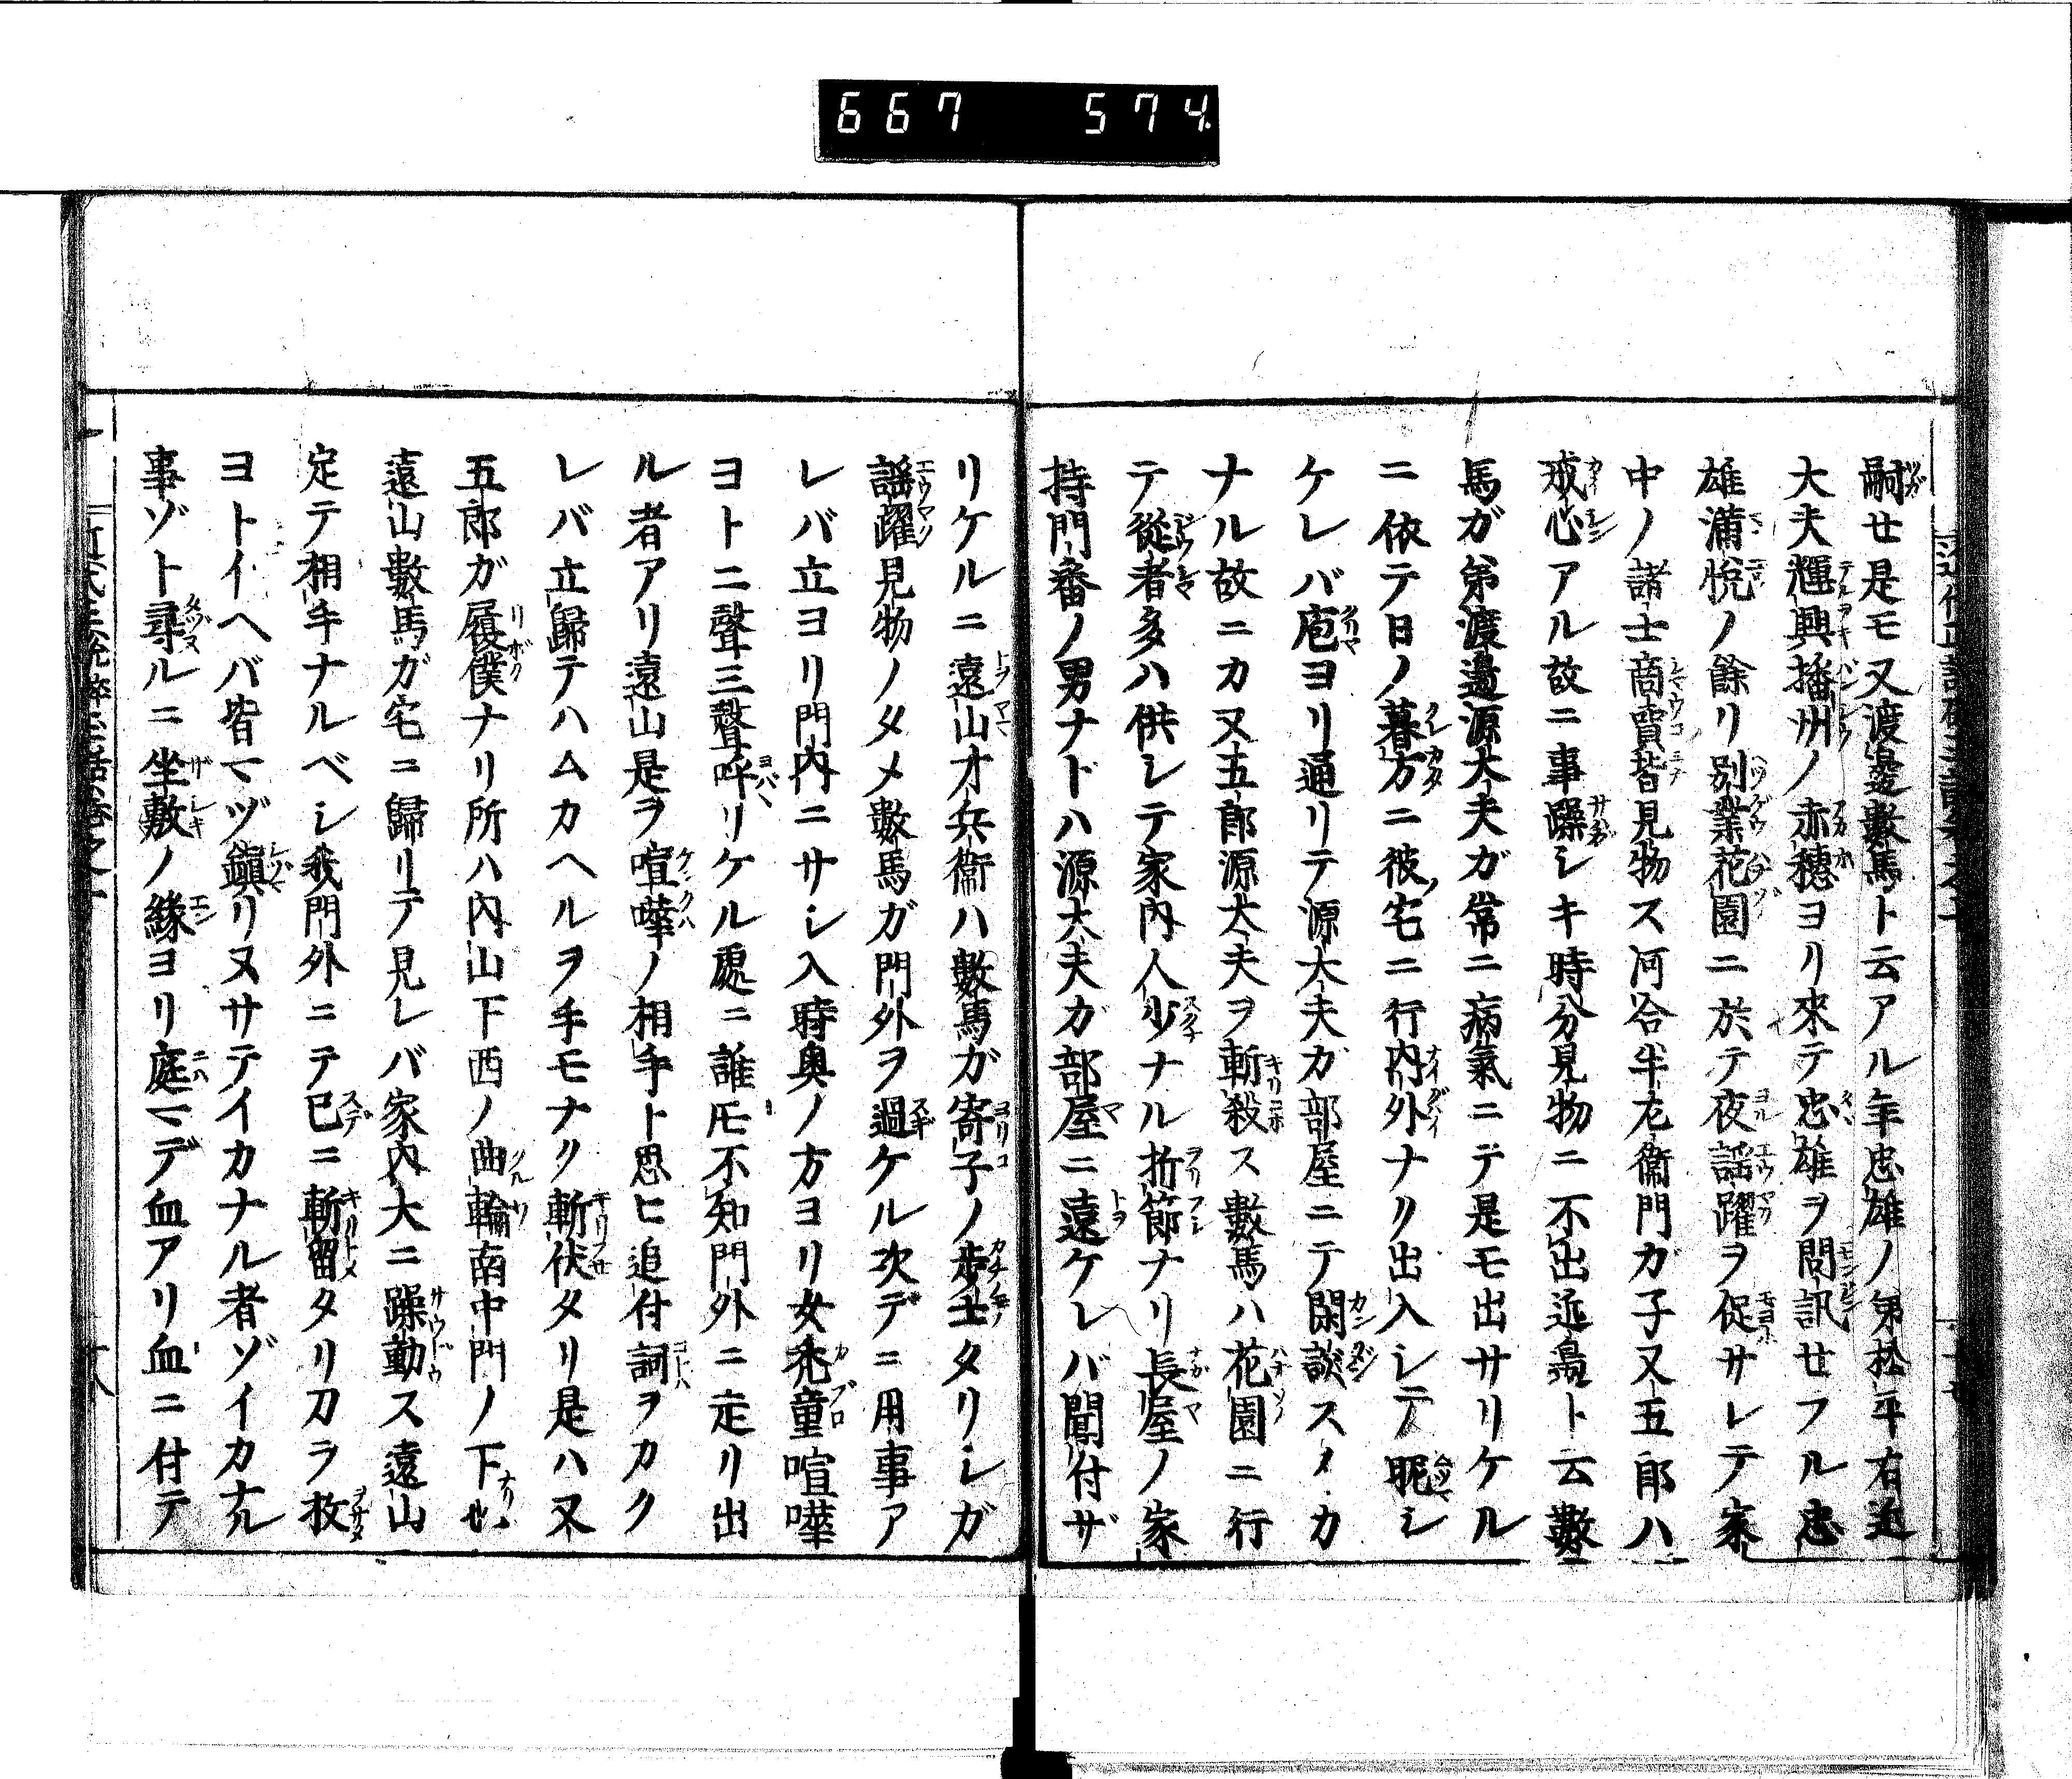 667 574
嗣セ是モ又渡邊數馬ト云アル年忠雄ノ弟松平右近
大夫輝興播州ノ赤穗ヨリ來テ忠雄ヲ問訊セフル忠
雄滿悅ノ餘リ別業花園ニ於テ夜謡躍ヲ促サレテ家
中ノ諸士商賣皆見物ス河合半左衞門ガ子又五郎ハ
戒心アル故ニ事躁シキ時分見物ニ不出近鳥ト云數
馬ガ弟渡邊源太夫ガ常ニ病氣ニテ是モ出サリケル
ニ依テ日ノ暮方ニ彼宅ニ行内外ナク出入シテ昵シ
ケレバ庖ヨリ通リテ源太夫ガ部屋ニテ閑談スメカ
ナル故ニカ又五郎源太夫ヲ斬殺ス數馬ハ花園ニ行
テ從者多ハ供シテ家內人少ナル折節ナリ長屋ノ家
持門番ノ男ナドハ源太夫ガ部屋ニ遠ケレバ聞付ザ
リケルニ遠山才兵衞ハ數馬ガ寄子ノ歩士タリシガ
謡躍見物ノタメ數馬ガ門外ヲ過ケル次デニ用事ア
レバ立ヨリ門內ニサシ入時奧ノ方ヨリ女禿童喧嘩
ヨト二聲三聲呼リケル處ニ誰モ不知門外ニ走リ出
ル者アリ遠山是ヲ喧嘩ノ相手ト思ヒ追付詞ヲカク
レバ立歸テハムカヘルヲ手モナク斬伏タリ是ハ又
五郎ガ履僕ナリ所ハ內山下西ノ曲輪南中門ノ下也
遠山數馬ガ宅ニ歸リテ見レバ家內大ニ躁動ス遠山
定テ相手ナルベシ我門外ニテ已ニ斬留タリ刀ヲ收
ヨトイヘバ皆マヅ鎭リヌサテイカナル者ゾイカナル
事ゾト尋ルニ坐敷ノ緣ヨリ庭マデ血アリ血ニ付テ